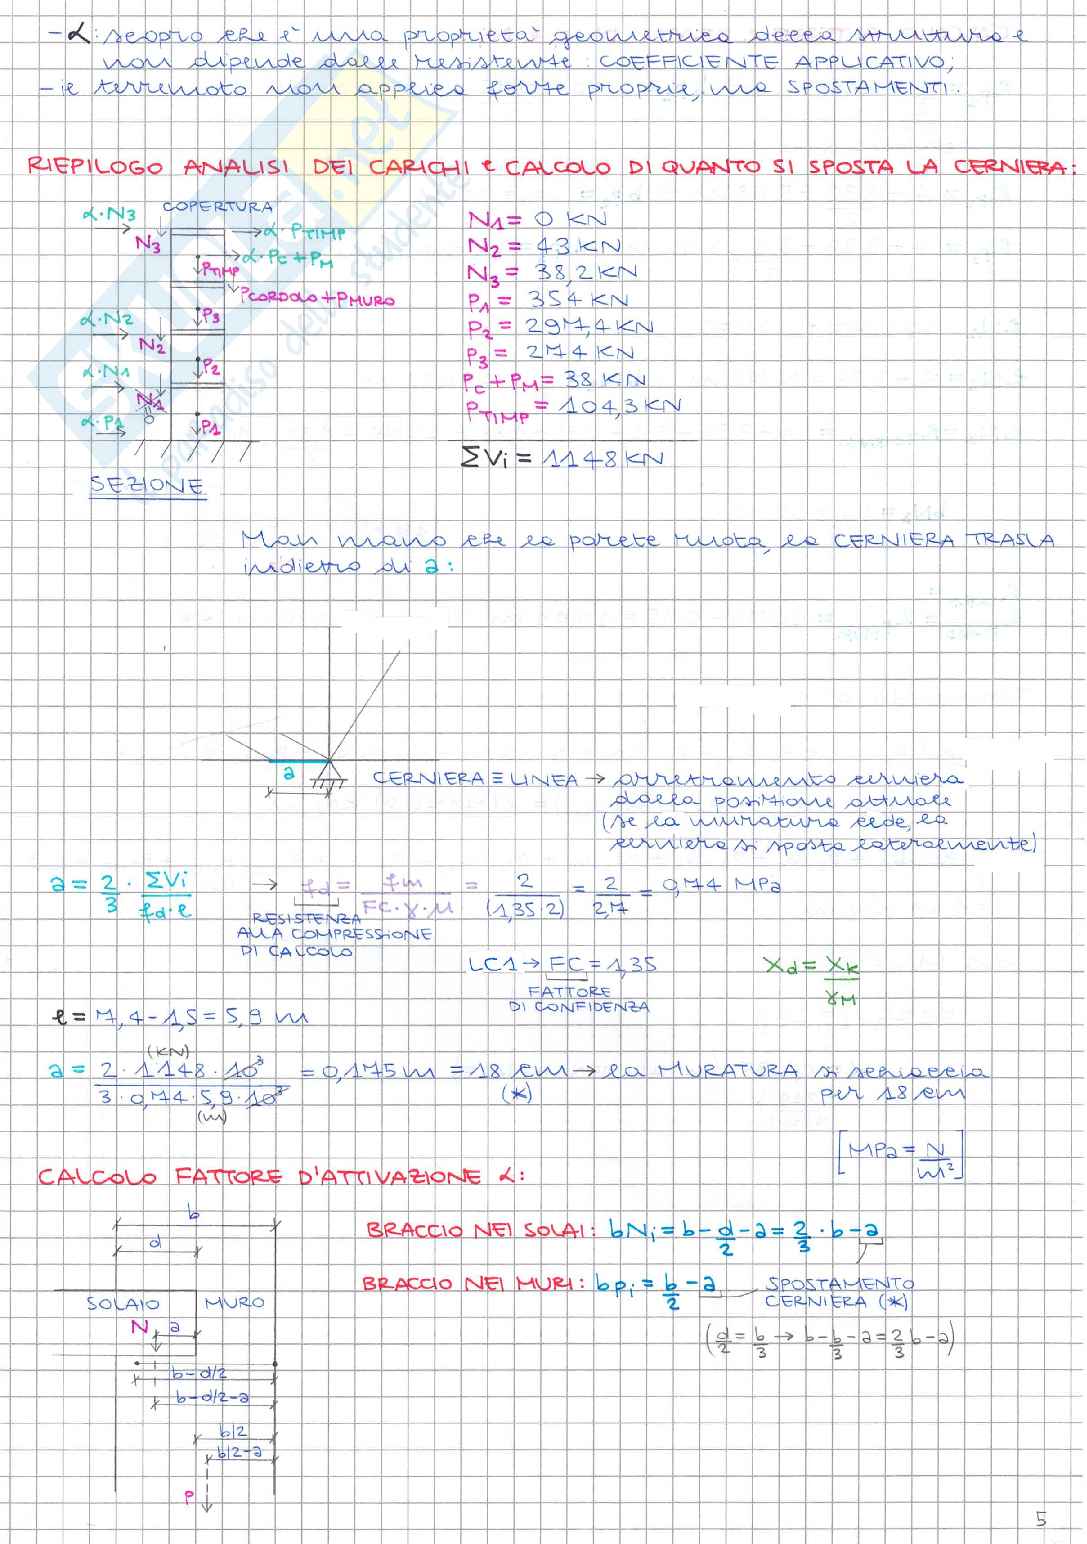 - α: scopro che è una proprietà geometrica della struttura e
non dipende dalle resistenze: COEFFICIENTE APPLICATIVO;
- il terremoto non applica forze proprie, ma SPOSTAMENTI.
RIEPILOGO ANALISI DEI CARICHI e CALCOLO DI QUANTO SI SPOSTA LA CERNIERA:
α·N3
COPERTURA
N3
α·PTIMP
α·Pc+PM
PTIMP
PCORDOLO+PMURO
α·N2
P3
N2
α·N1
P2
N1
α·P1
P1
SEZIONE
N1 = 0 KN
N2 = 43 KN
N3 = 38,2 KN
P1 = 354 KN
P2 = 297,4 KN
P3 = 274 KN
Pc + PM = 38 KN
PTIMP = 104,3 KN
ΣVi = 1148 KN
Man mano che la parete ruota, la CERNIERA TRASLA
indietro di a:
a
CERNIERA ≡ LINEA → arretramento cerniera
dalla posizione attuale
(se la muratura cede, la
cerniera si sposta lateralmente)
a = 2/3 · ΣVi/(fd·l) → fd = fm/(FC·γ·M) = 2/(1,35·2) = 2/2,7 = 0,74 MPa
RESISTENZA
ALLA COMPRESSIONE
DI CALCOLO
LC1 → FC = 1,35
FATTORE
DI CONFIDENZA
Xd = XK/γM
l = 7,4 - 1,5 = 5,9 m
(KN)
a = 2 · 1148 · 10³/(3 · 0,74 · 5,9 · 10³) = 0,175 m = 18 cm → la MURATURA si schiaccia
(m)
(*)
per 18 cm
[MPa = N/m²]
CALCOLO FATTORE D'ATTIVAZIONE α:
b
d
SOLAIO
MURO
N
a
b-d/2
b-d/2-a
b/2
b/2-a
P
BRACCIO NEI SOLAI: bNi = b - d/2 - a = 2/3 · b - a
BRACCIO NEI MURI: bPi = b/2 - a
SPOSTAMENTO
CERNIERA (*)
(d/2 = b/3 → b - b/3 - a = 2/3 b - a)
5
SKUOLA.net
il paradiso dello studente